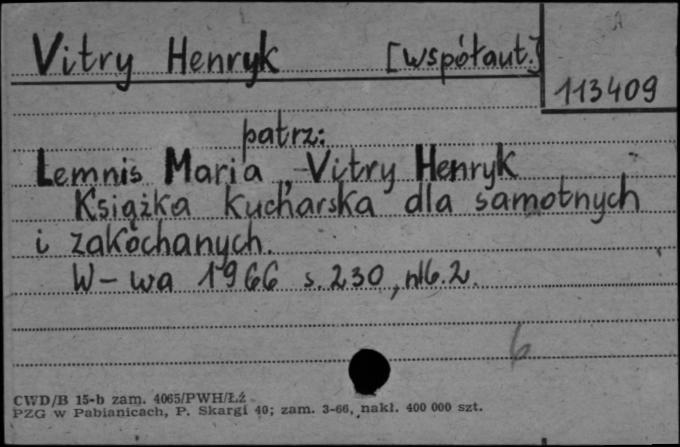 Vitry Henryk [współaut.]
113409
patrz:
Lemnis Maria, Vitry Henryk
Książka kucharska dla samotnych
i zakochanych.
W-wa 1966 s. 230, nlb. 2.
6
CWD/B 15-b zam. 4065/PWH/ŁŻ
PZG w Pabianicach, P. Skargi 40; zam. 3-66, nakł. 400 000 szt.